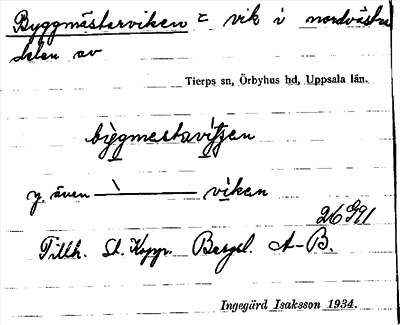 Byggmästarviken = vik i nordvästra
delen av
Tierps sn, Örbyhus hd, Uppsala län.
byggmestavitjen
y. även \ ——— viken
26 G91
Tillh. St. Kopp. Bergsl. A-B.
Ingegärd Isaksson 1934.